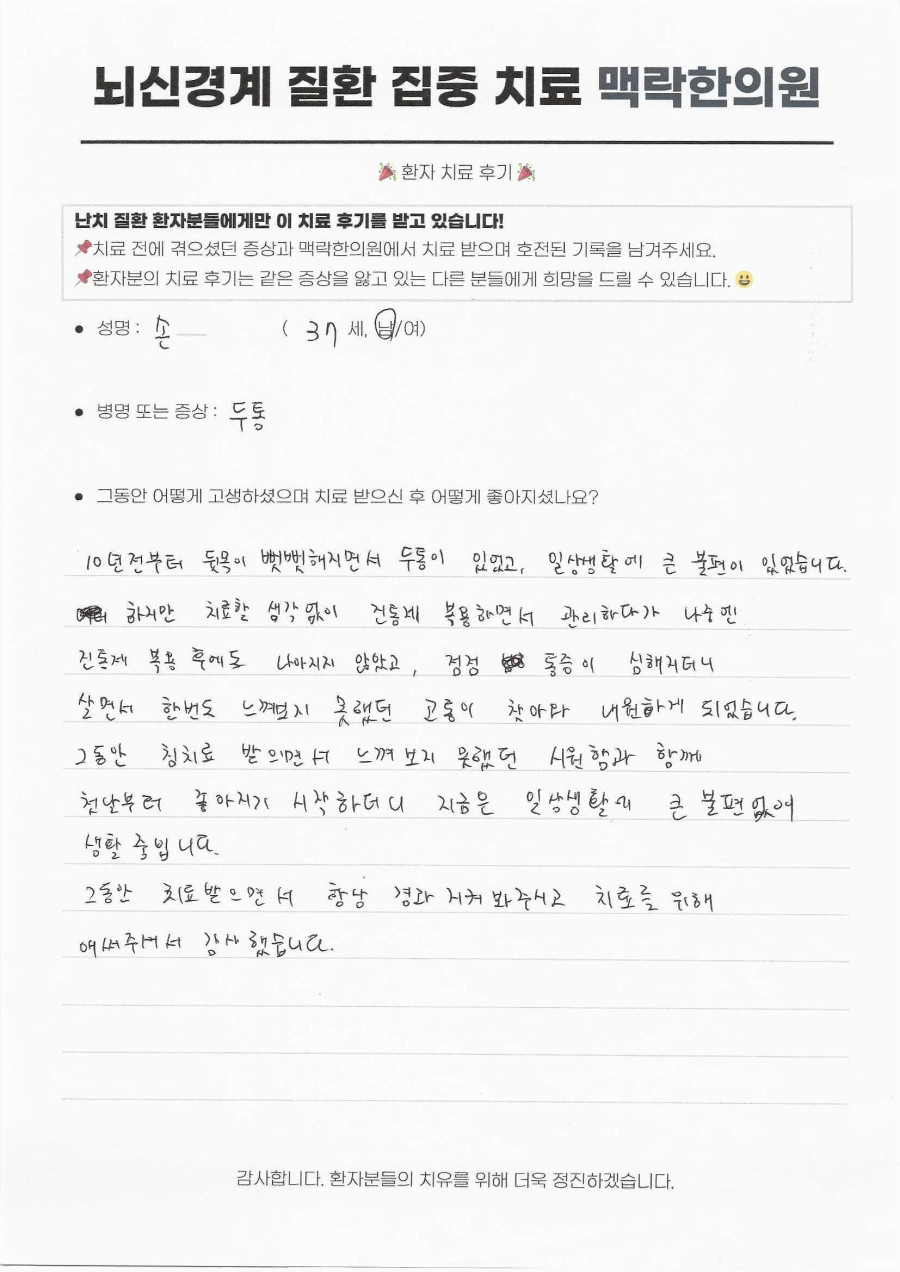 뇌신경계 질환 집중 치료 맥락한의원
🎉 환자 치료 후기 🎉
난치 질환 환자분들에게만 이 치료 후기를 받고 있습니다!
📌치료 전에 겪으셨던 증상과 맥락한의원에서 치료 받으며 호전된 기록을 남겨주세요.
📌환자분의 치료 후기는 같은 증상을 앓고 있는 다른 분들에게 희망을 드릴 수 있습니다. 😃
• 성명 : 손 ( 37 세, 남/여)
• 병명 또는 증상 : 두통
• 그동안 어떻게 고생하셨으며 치료 받으신 후 어떻게 좋아지셨나요?
10년전부터 뒷목이 뻣뻣해지면서 두통이 있었고, 일상생활에 큰 불편이 있었습니다.
하지만 치료할 생각없이 진통제 복용하면서 관리하다가 나중엔
진통제 복용 후에도 나아지지 않았고, 점점 통증이 심해지더니
살면서 한번도 느껴보지 못했던 고통이 찾아와 내원하게 되었습니다.
그동안 침치료 받으면서 느껴보지 못했던 시원함과 함께
첫날부터 좋아지기 시작하더니 지금은 일상생활에 큰 불편없이
생활 중입니다.
그동안 치료받으면서 항상 경과 지켜봐주시고 치료를 위해
애써주셔서 감사했습니다.
감사합니다. 환자분들의 치유를 위해 더욱 정진하겠습니다.